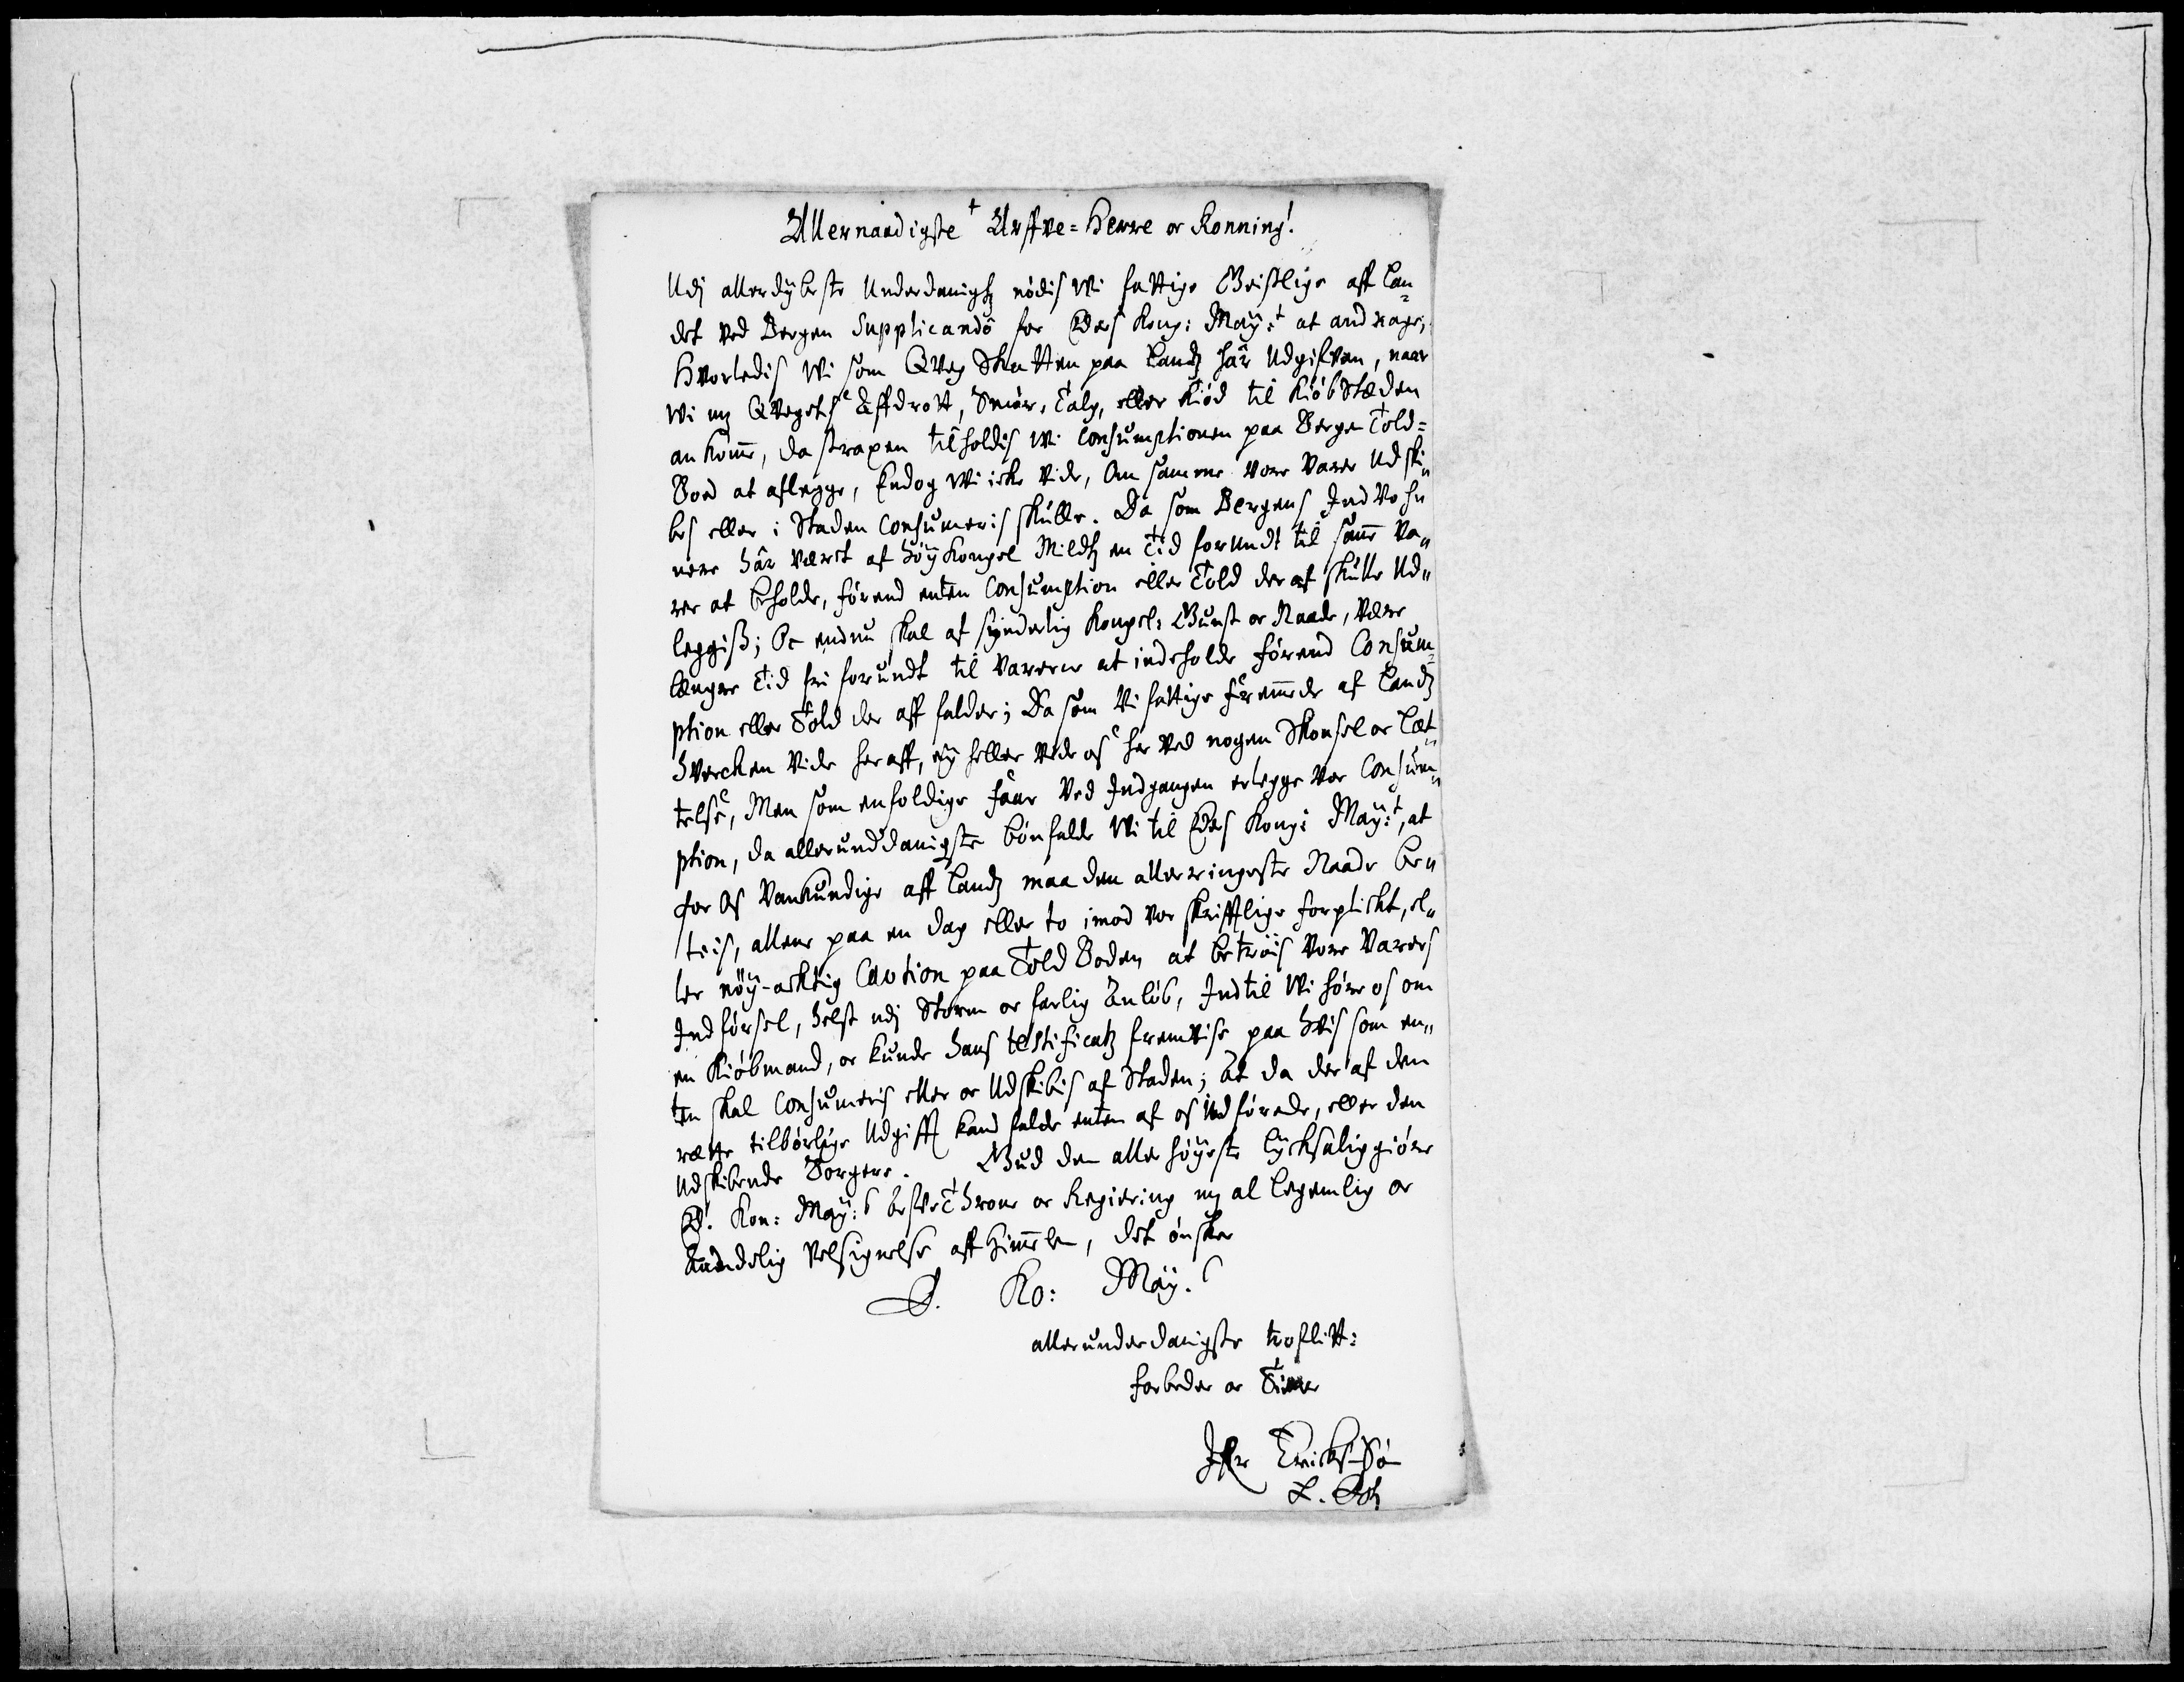 Allernaadigste Arffve=Herre oc Konning!
Udj allerdÿbeste Underdanigh: nödis Wi fattige Geistlige aff Lan=
det ved Bergen Supplicandô for Eders Kong: Maÿ:t at andrage,
Hvorledis Wi som Qveg Skatten paa Landz här Udgifven, naar
Wi mz Qvegets Affdrott, Smör, Talg, eller Kiöd til Kiöbstæden
ankomme, da strapen tilholdis Wi Consumptionen paa Bergen Told=
Bod at aflegge, Endog Wi icke Vide, Om samme vore Varer Udski„
bes eller i Staden Consumeris skulle. Da som Bergens Indvohn
nere hâr værit af höÿ Kongel Mildh: en Tid forundt til samme Va„
rer at beholde, förend enten Consumption eller Told deraf skulle Ud„
leggiß; Oc endnu skal af synderlig Kongel: Gunst oc Naade, Være
længere Tid fri forundt til Varerne at indeholde förend Consum=
ption eller Told der aff falder; Da som Vi fattige fremmede af Landz
hvercken Vide heraff, eÿ heller vide os her ved nogen Skonsel oc Læt„
telse, Men som enfoldige Faar Ved Indgangen erlegge vor Consum„
ption, da allerunddanigste bönfalde Wi til Eders Kong: Maÿ:t, at
for Os Vankundige aff Landz maa den allerringeste Naade be„
teis, allene paa en dag eller to imod vor skrifftlige forplicht, el„
ler nöÿ-achtig Caution paa Told Boden at betrois Vore Varers
Indförsel, helst udj Storm oc farlig Anlöb, Indtil Wi höre os om
en Kiöbmand, oc kunde hans testificatz fremvise paa hvis som en„
ten skal Consumeris eller oc Udskibis af Staden; At da der af den
rætte tilbörlige Udgifft kand falde enten af os Indförende, eller den
Udskibende Borgere. Gud den aller höÿeste lÿcksaliggiöre
E. Kon: Maÿ:s beste Throne oc Regiering mz al Legemlig oc
Aandelig Velsignelse aff Himmelen, det önsker
E. Ko: Maÿ.s
allerunderdanigste troplitt:
forbeder oc Tiener
Erickssö